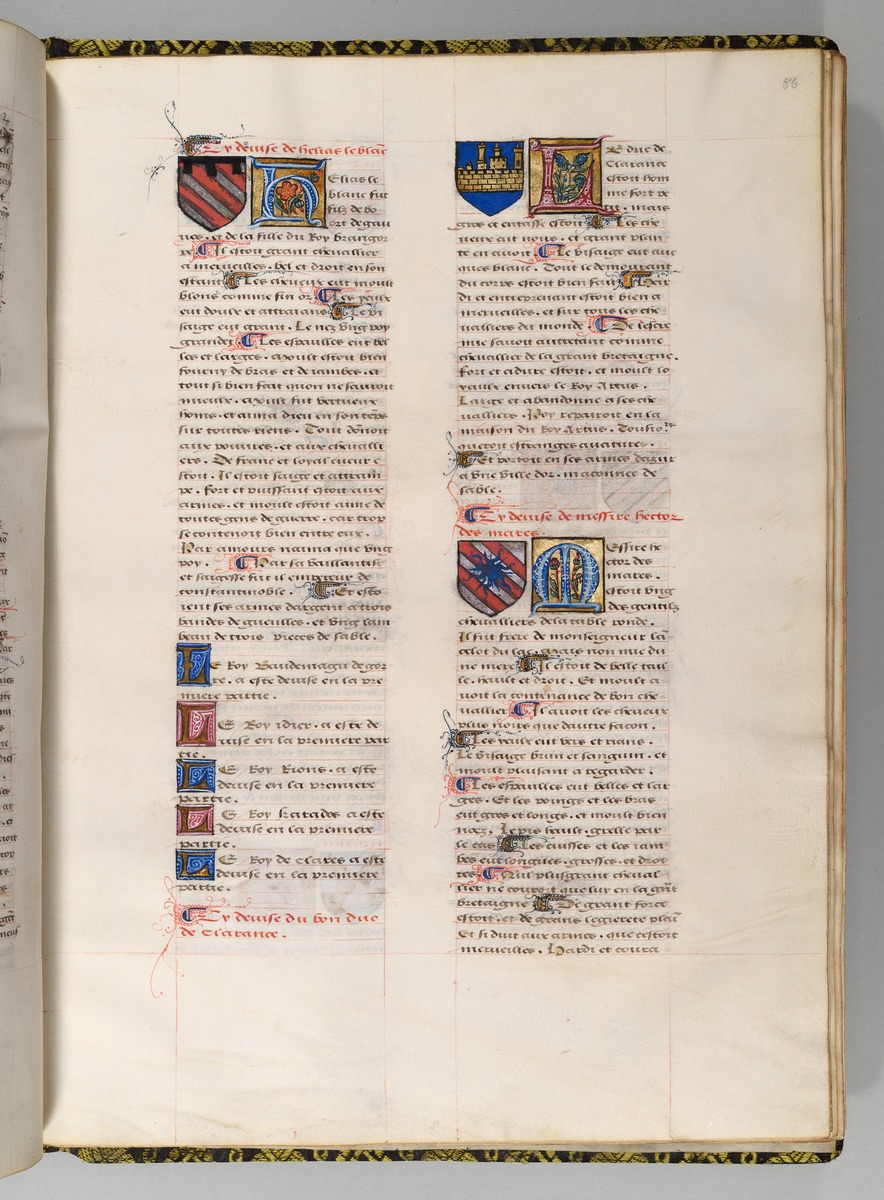 86
Cy devise de helias le blanc
Helias le
blanc fut
filz de bo
ort de gau
nes . et de la fille du Roy brangor
re . Il estoit grant chevallier
a merveilles . bel et droit en son
estant Les cheveux eut moult
blons comme fin or Les yeulx
eut doulx et attraians . Le vi
saige eut grant . Le nez ung poy
grandet Les espaulles eut bel
les et larges . moult estoit bien
fourny de bras et de iambes . et
tout si bien fait quon ne sauroit
mieulx . Moult fut vertueux
homs . et ama dieu en son temps
sur toutes riens . Tout donoit
aux povures . et aux chevalli
ers . De franc et loyal cueur e
stoit . Il estoit saige et attram
pe . Fort et puissant estoit aux
armes . et moult estoit aime de
toutes gens de guerre . car trop
se contenoit bien entre eux .
Par amours nama que ung
poy . Par sa vaillantise
et saigesse fut il empereur de
constantinoble . Et esto
ient ses armes dargent a trois
bandes de gueulles . et ung lam
beau de trois pieces de sable .
LE Roy Baudemagu de gor
re . a este devise en la pre
miere partie .
LE Roy idier . a este de
vise en la premiere par
tie .
LE Roy Rions . a este
devise en la premiere
partie .
LE Roy karados a este
devise en la premiere
partie .
LE Roy de Clares a este
devise en la premiere
partie .
Cy devise du bon duc
de Clarance .
LE duc de
Clarance
estoit hom
me fort ve
lu . mais
gros et entasse estoit Les che
veux eut noirs . et grant plan
te en avoit Le visaige eut auc
ques blanc . Tout le demourant
du corps estoit bien fait Har
di et entreprenant estoit bien a
merveilles . et sur tous les che
valliers du monde De lescre
mie savoit autretant comme
chevallier de la grant bretaigne .
Fort et adure estoit . et moult lo
yaulx envers le Roy Artus .
Large et abandonne a ses che
valliers . Poy repairoit en la
maison du Roy Artus . Tousio.rs
queroit estranges avatures .
Et portoit en ses armes dazur
a une ville dor . maconnee de
sable .
Cy devise de messire hector
des mares .
Messire he
ctor des
mares .
estoit ung
des gentilz
chevalliers de la table ronde .
Il fut frere de monseigneur lā
celot du lac . Mais non mie du
ne mere Il estoit de belle tail
le . hault et droit . Et moult a
voit la contenance de bon che
vallier Il avoit les cheveux
plus noirs que dautre facon .
Les yeulx eut vers et rians .
Le visaige brun et sanguin . et
moult plaisant a regarder .
Les espaulles eut belles et lar
ges . Et les poings et les bras
eut gros et longs . et moult bien
noez . Le pis hault . grelle par
le cas Les cuisses et les iam
bes eut longues . grosses . et droi
tes Nul plus grant cheval
lier ne couroit que luy en la grāt
bretaigne De grant force
estoit . et de grans legierete plai
Et si duit aux armes . que cestoit
merveilles . Hardi et coura